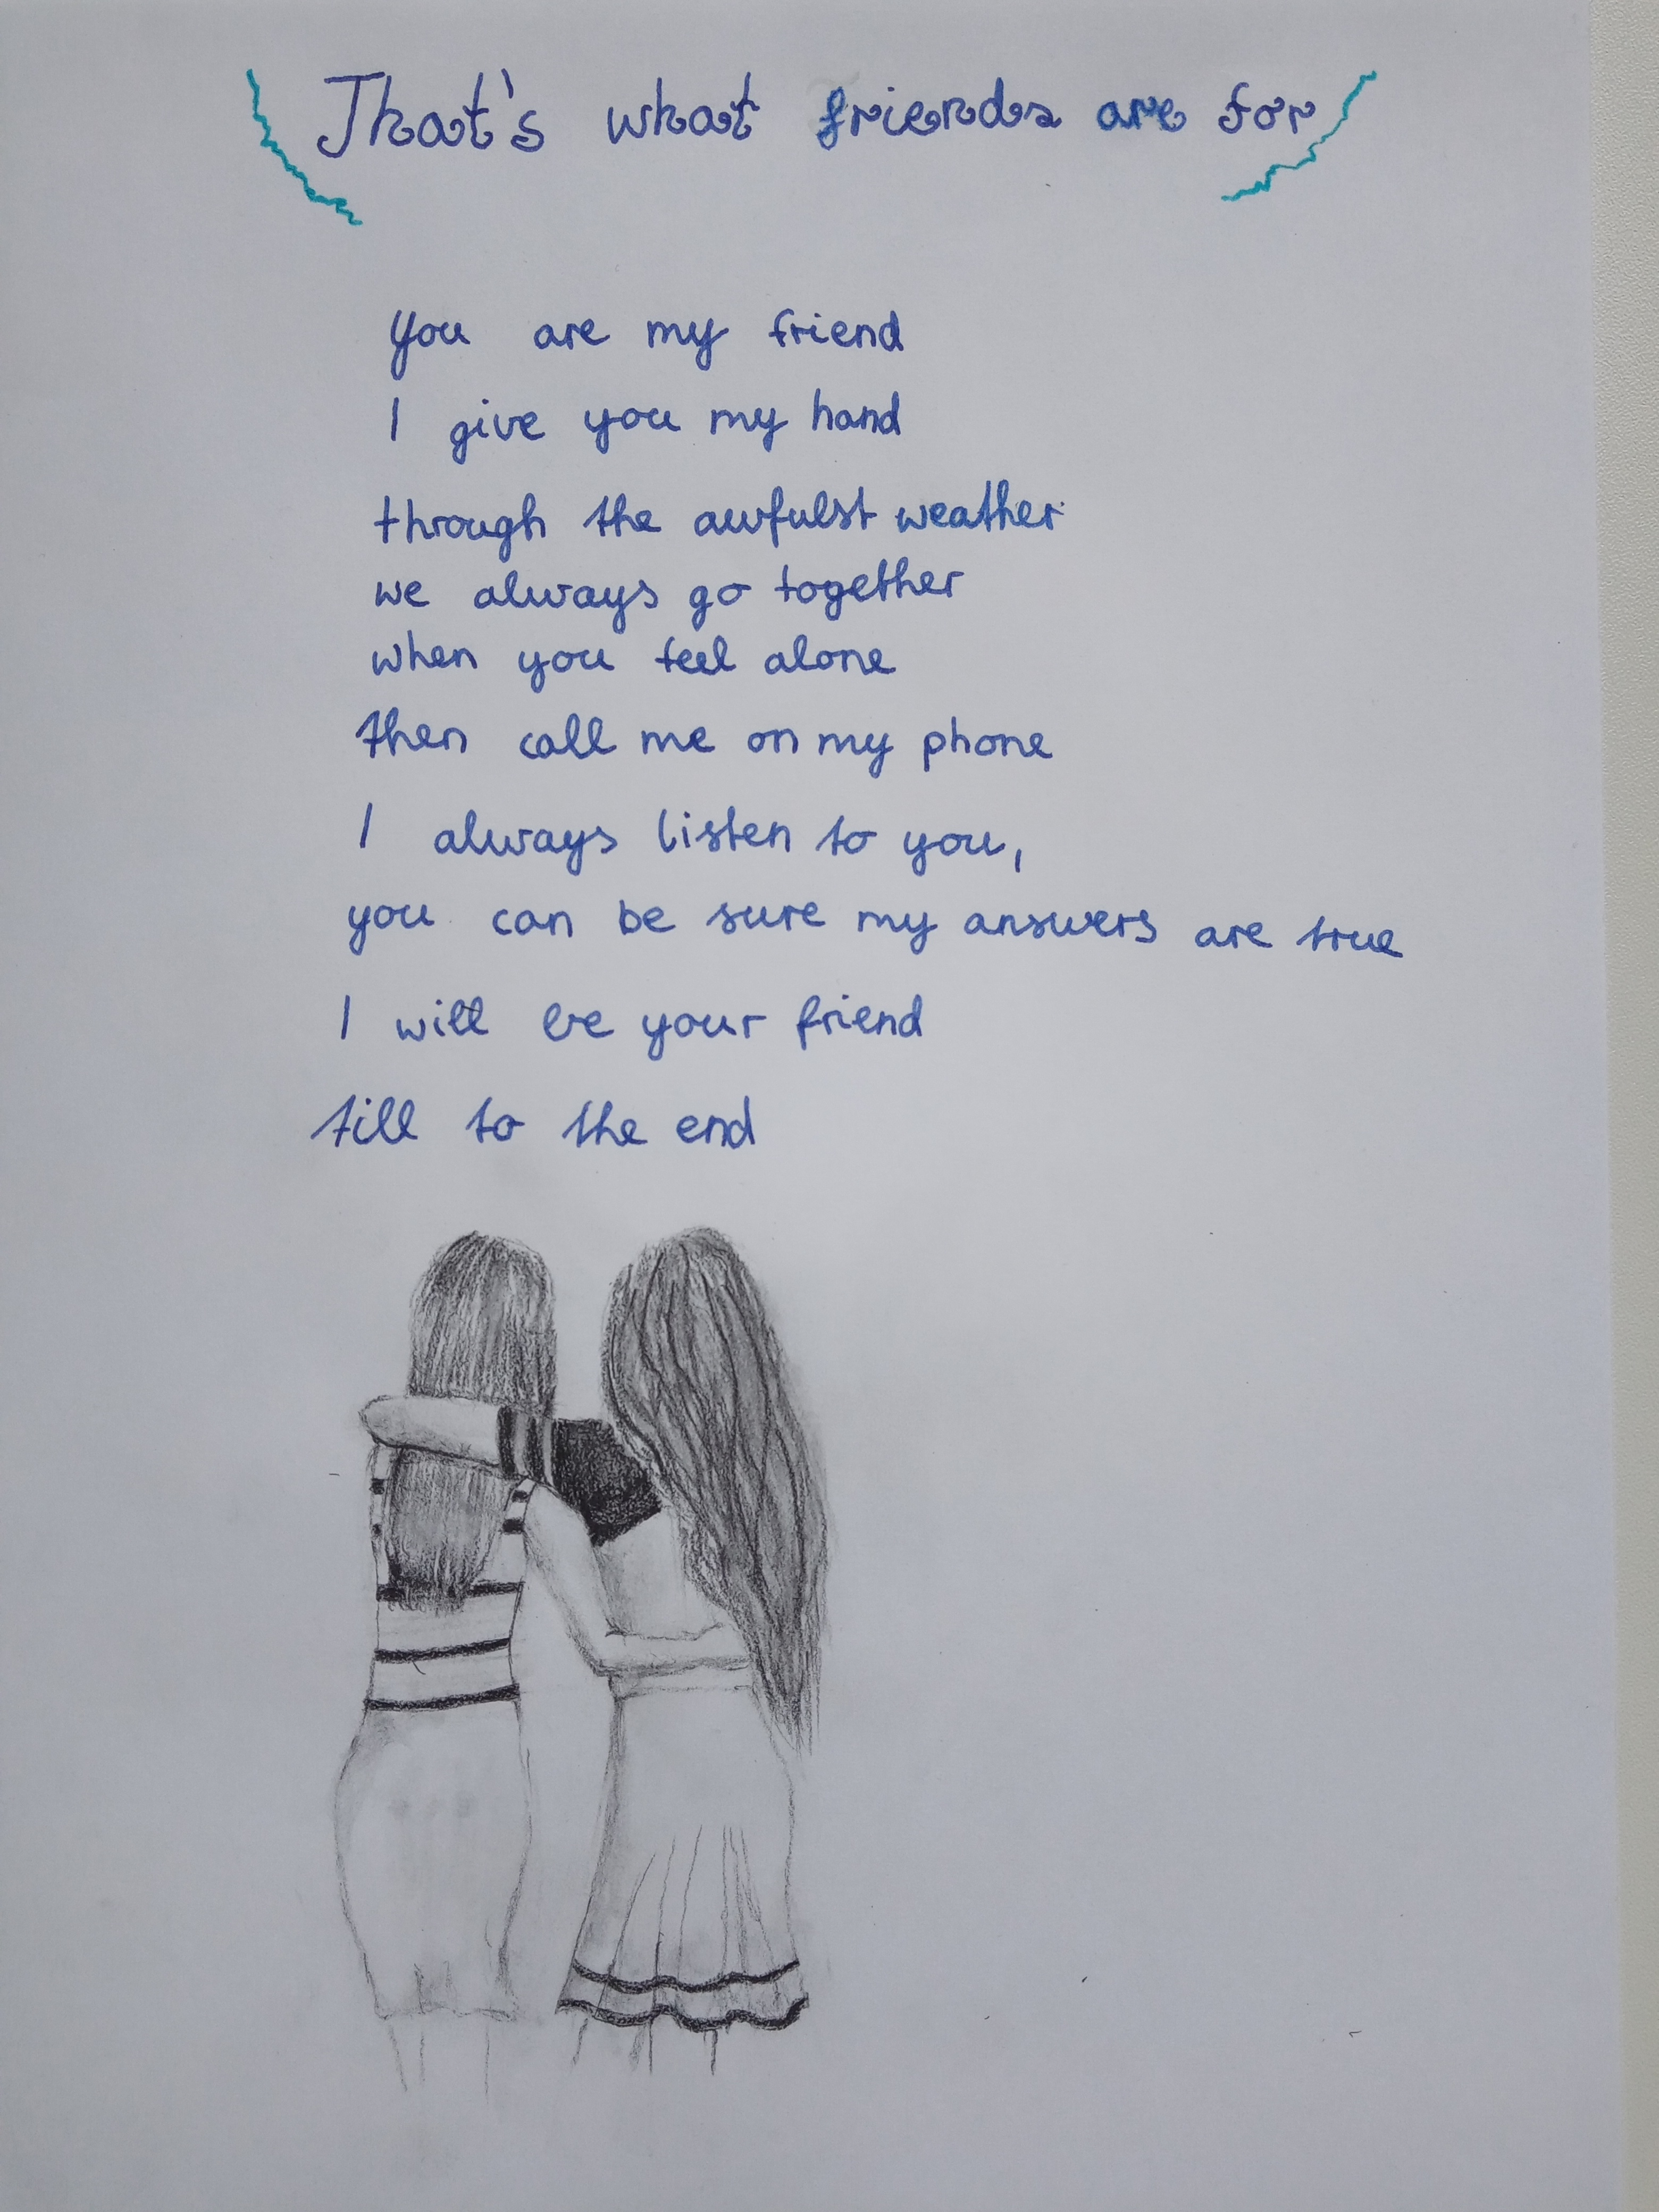 That's what friends are for
You are my friend
I give you my hand
through the awfulst weather
we always go together
when you feel alone
then call me on my phone
I always listen to you,
you can be sure my answers are true
I will be your friend
till to the end